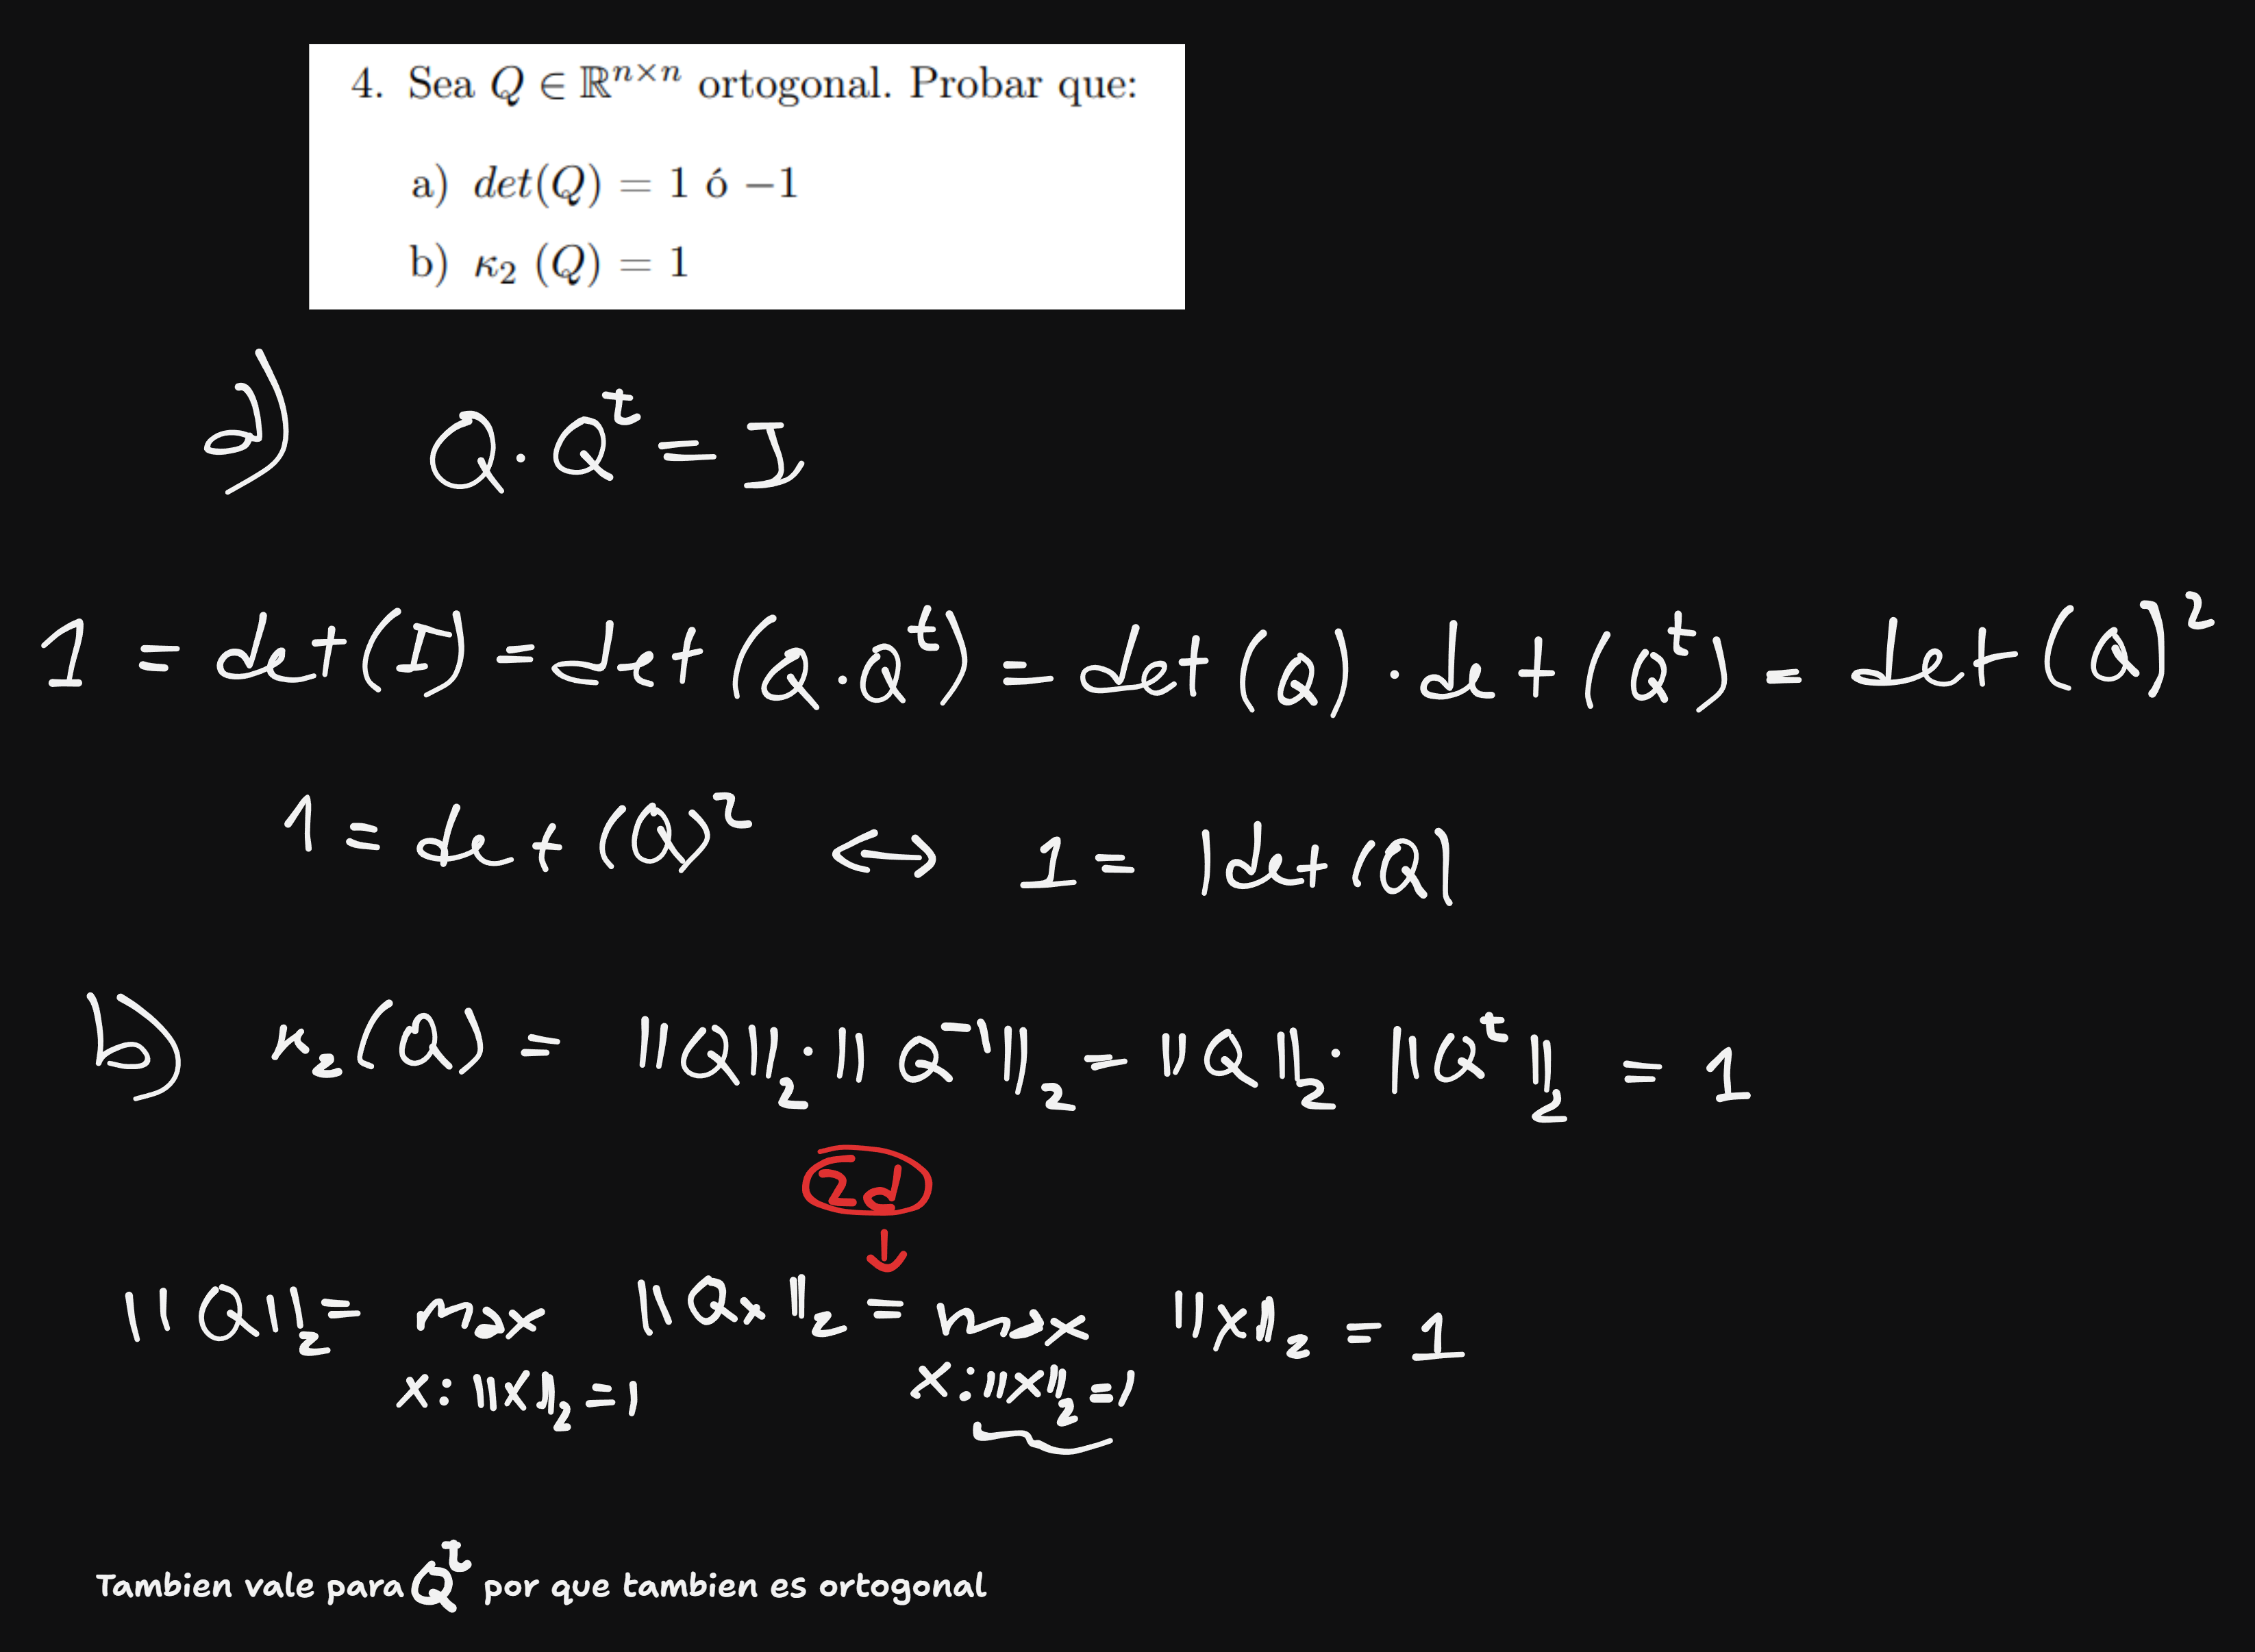 4. Sea Q ∈ ℝⁿˣⁿ ortogonal. Probar que:
a) det(Q) = 1 ó −1
b) κ₂ (Q) = 1
a) Q · Qᵗ = I
1 = det(I) = det(Q · Qᵗ) = det(Q) · det(Qᵗ) = det(Q)²
1 = det(Q)² ⟷ 1 = |det(Q|
b) κ₂(Q) = ‖Q‖₂ · ‖Q⁻¹‖₂ = ‖Q‖₂ · ‖Qᵗ‖₂ = 1
2d
↓
‖Q‖₂ = max ‖Qx‖₂ = max ‖x‖₂ = 1
x: ‖x‖₂ = 1 x: ‖x‖₂ = 1
Tambien vale para Qᵗ por que tambien es ortogonal